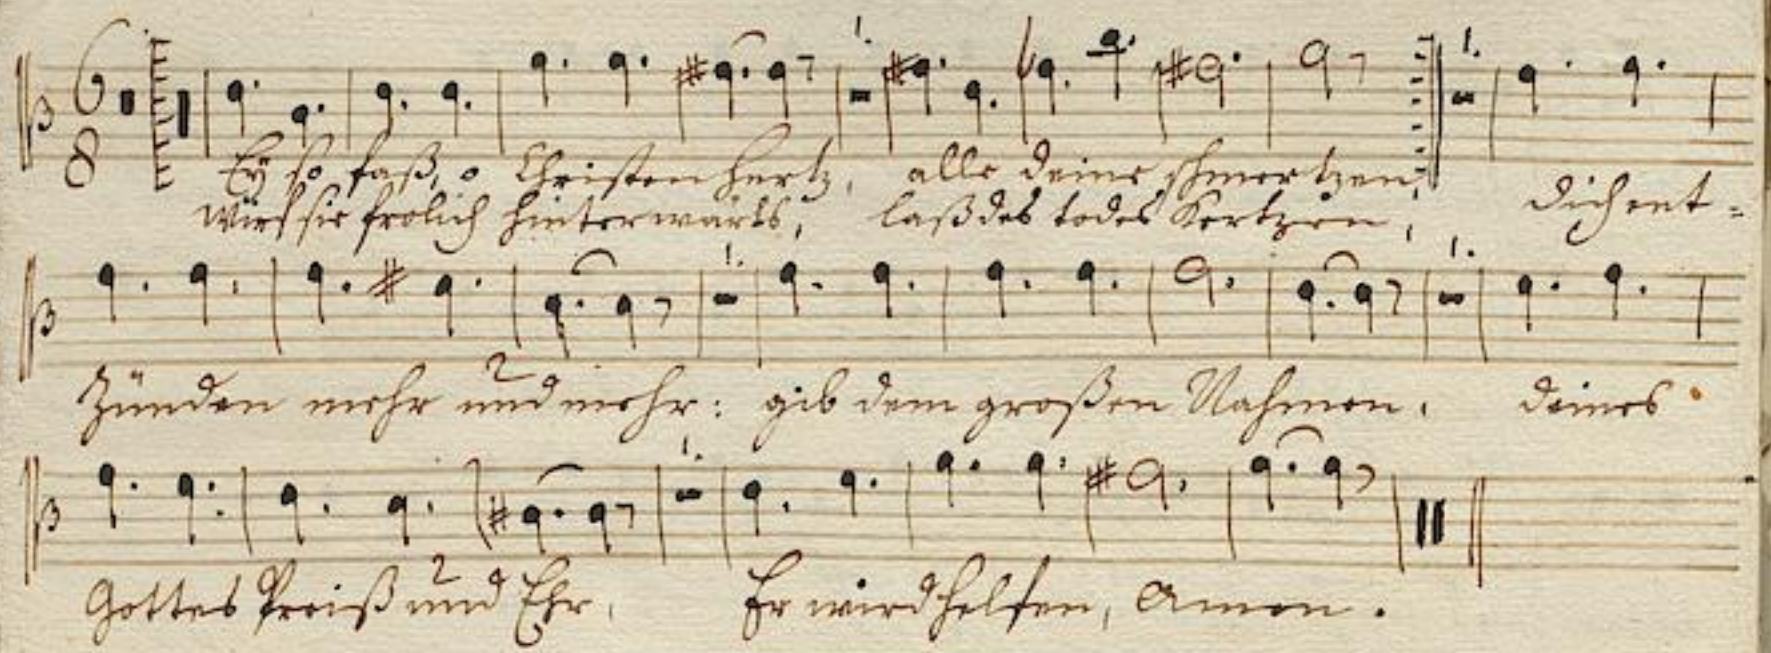 6
8
Eÿ so faß, o Christen Hertz, alle deine schmertzen,
Wirf sie frölich hinterwärts, laß des todes Kertzen,
dich ent-
Zünden mehr und mehr: gib dem großen Nahmen, deines
Gottes Preiß und Ehr, Er wird helfen, Amen.